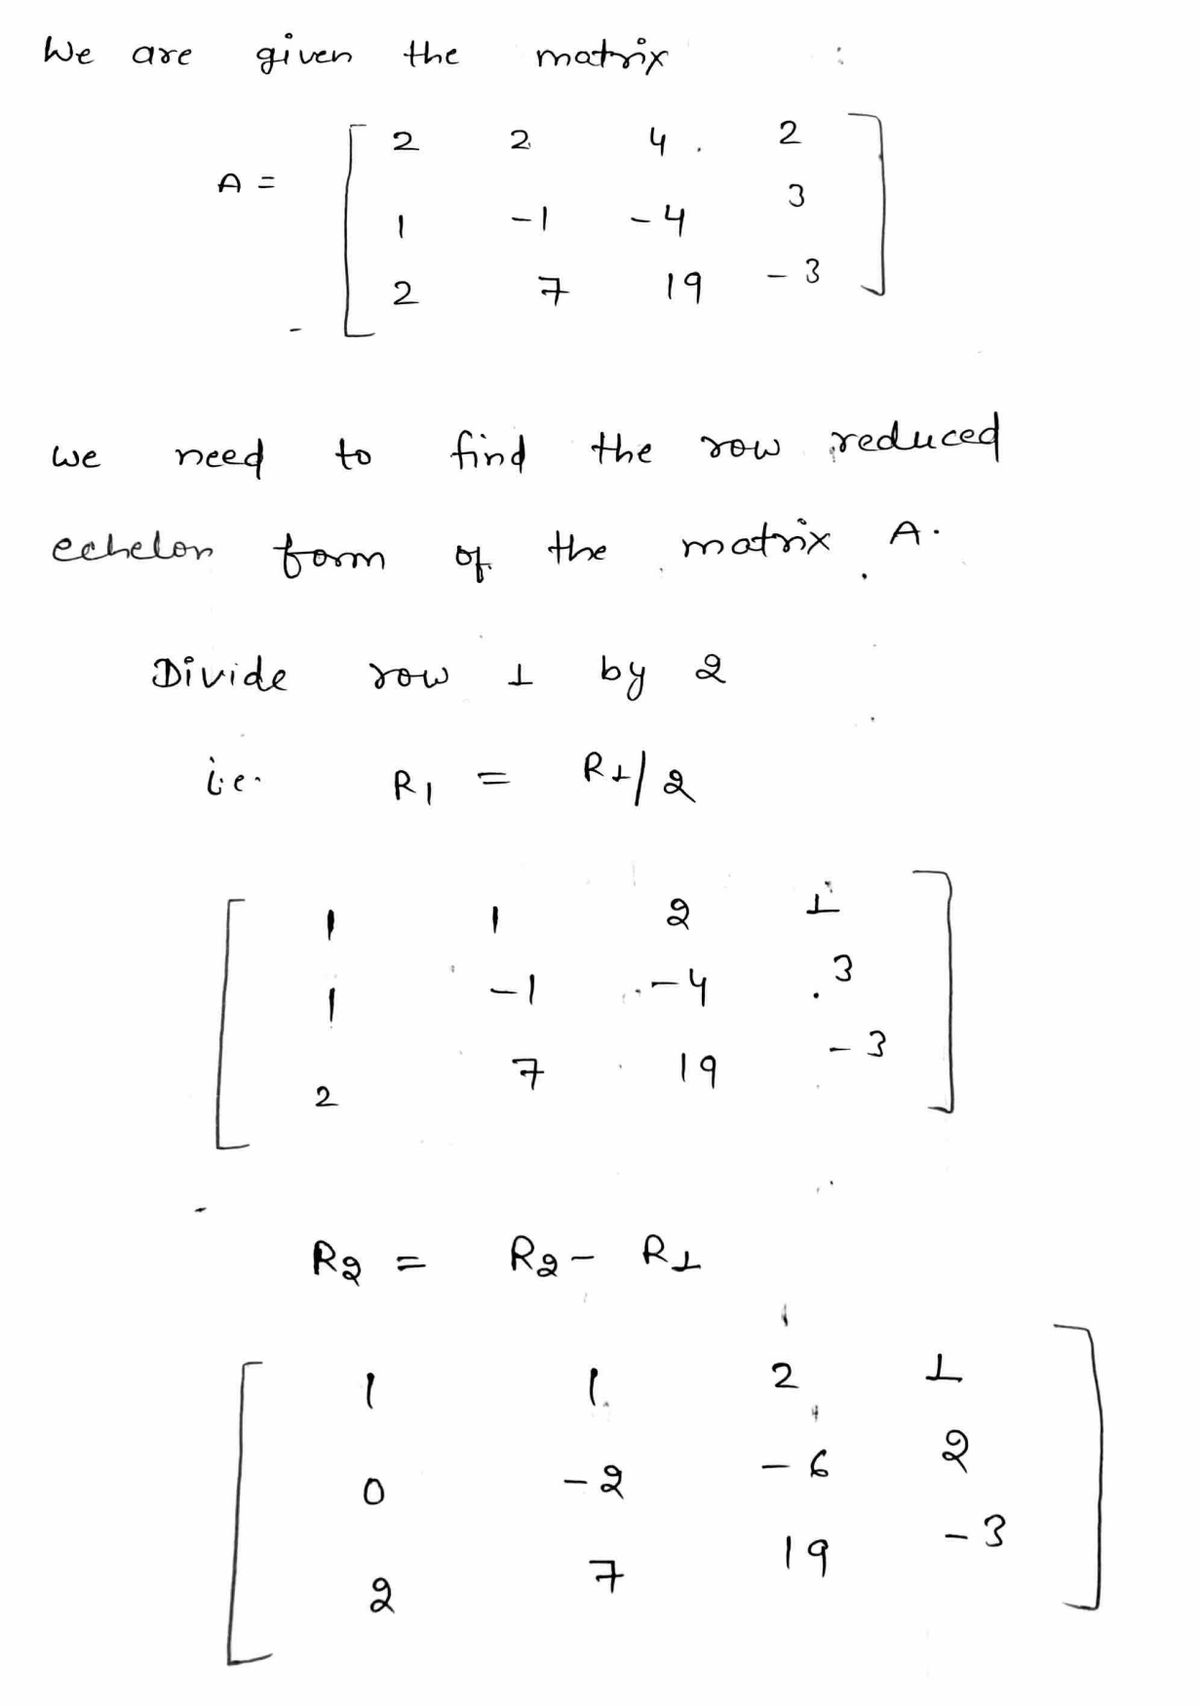 We are given the matrix :
A = [ 2 2 4 2
1 -1 -4 3
2 7 19 -3 ]
we need to find the row reduced
echelon form of the matrix A.
Divide row 1 by 2
i.e. R1 = R1/2
[ 1 1 2 1
1 -1 -4 3
2 7 19 -3 ]
R2 = R2 - R1
[ 1 1 2 1
0 -2 -6 2
2 7 19 -3 ]